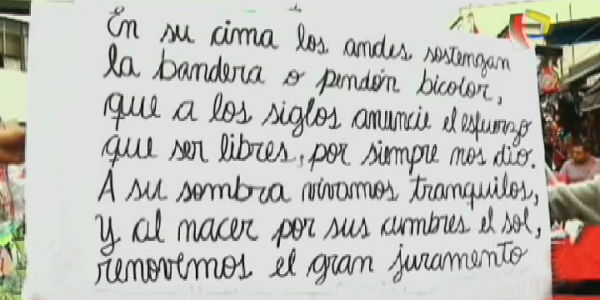 En su cima los andes sostengan
la bandera o pendón bicolor,
que a los siglos anuncie el esfuerzo
que ser libres, por siempre nos dio.
A su sombra vivamos tranquilos,
Y al nacer por sus cumbres el sol,
renovemos el gran juramento